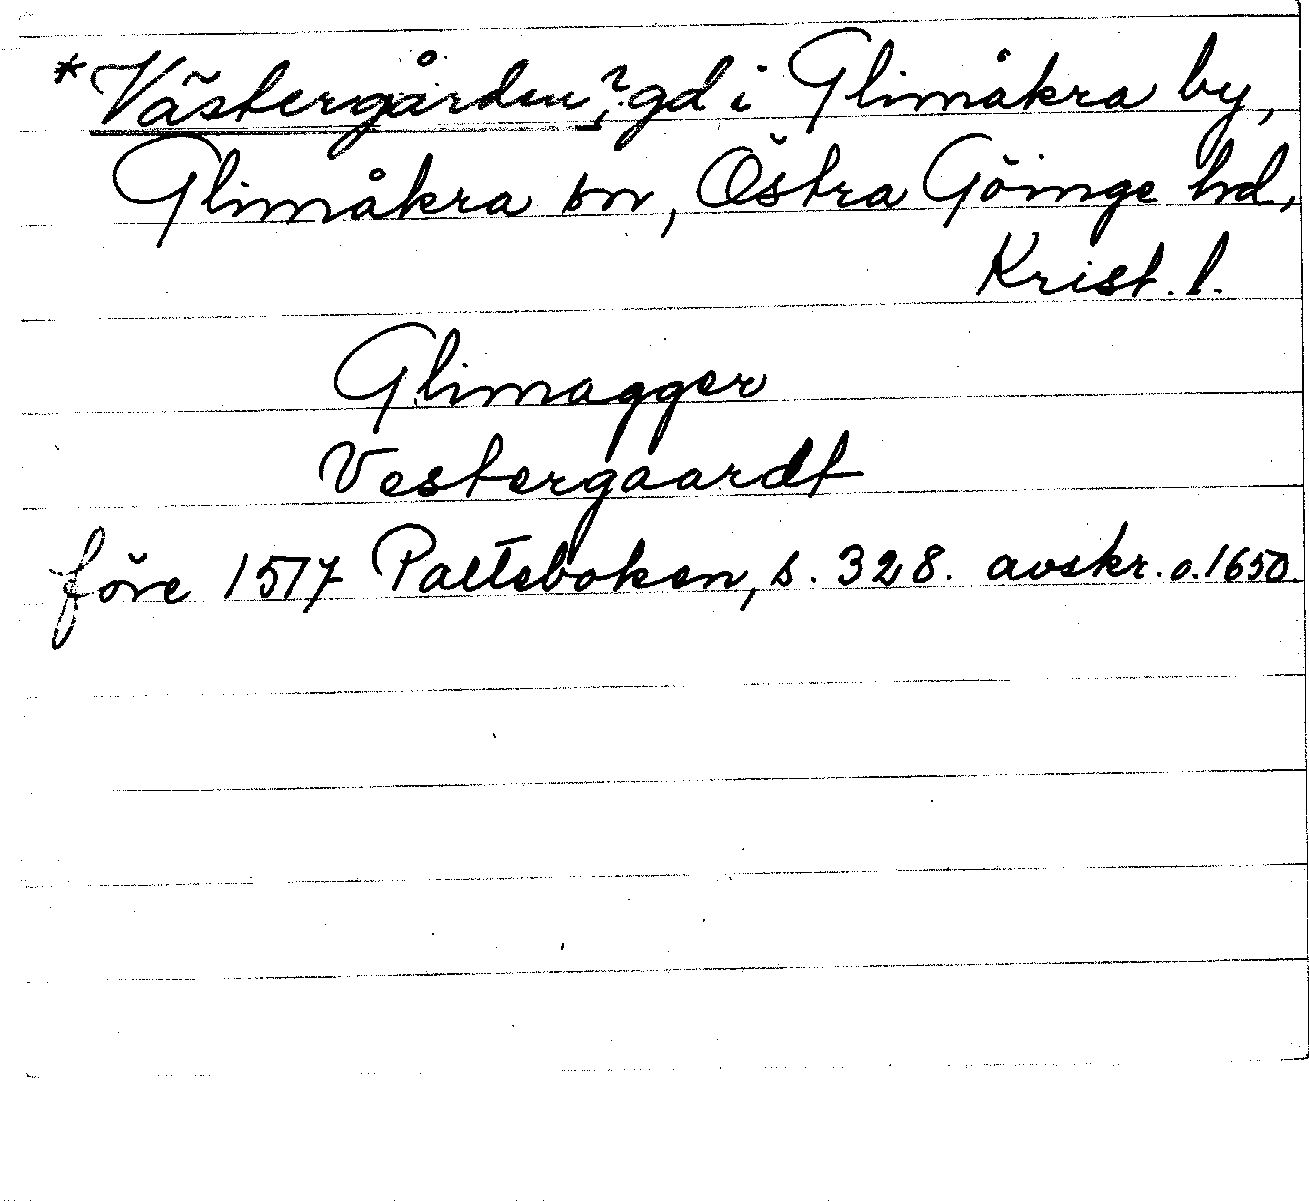 *Västergården?, gd i Glimåkra by,
Glimåkra sn, Östra Göinge hd,
Krist. l.
Glimagger
Vestergaardt
före 1517 Palteboken, s. 328. avskr. o. 1650